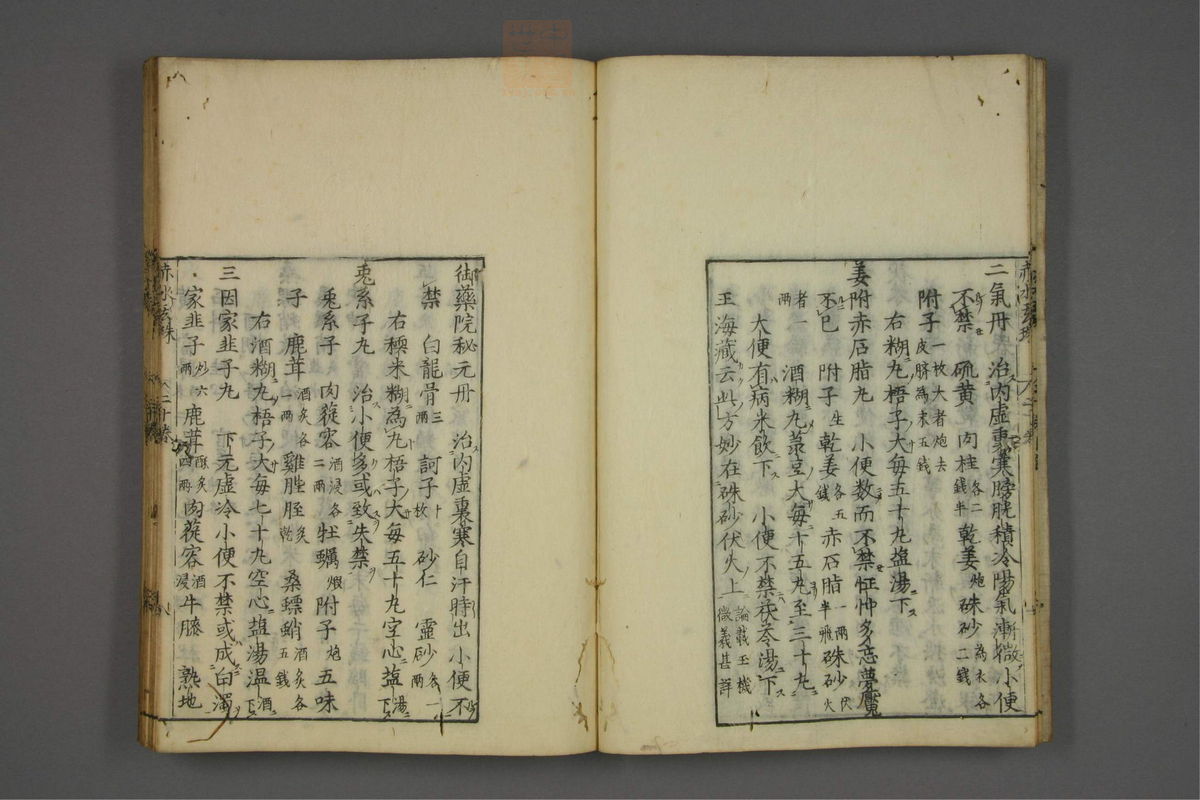 二氣丹 治內虛裏寒膀胱積冷陽氣漸微小便
不禁 硫黃 肉桂各二錢半 乾姜炮 硃砂為末各二錢
附子一枚大者炮去皮臍為末五錢
右糊丸梧子大每五十丸塩湯下
姜附赤石脂丸 小便数而不禁怔忡多忘夢魘
不已 附子生 乾姜各五錢 赤石脂一両半飛 硃砂伏火
者一両 酒糊丸菉豆大每十五丸至三十丸
大便有病米飲下 小便不禁茯苓湯下
王海藏云此方妙在硃砂伏火上論載玉機微義甚詳
赤水玄珠 二十卷
御藥院秘元丹 治內虛裏寒自汗時出小便不
禁 白龍骨三両 訶子十枚 砂仁 靈砂各一両
右糯米糊為丸梧子大每五十丸空心塩湯下
兎系子丸 治小便多或致失禁
兎系子 肉蓯容酒浸各二両 牡蠣煅 附子炮 五味
子 鹿茸酒炙各一両 雞䏶胵炙乾 桑螵蛸酒炙各五錢
右酒糊丸梧子大每七十丸空心塩湯温酒
三因家韭子丸 下元虛冷小便不禁或成白濁
家韭子炒六両 鹿茸酥炙四両 肉蓯容酒浸 牛膝 熟地
赤水玄珠 二十卷